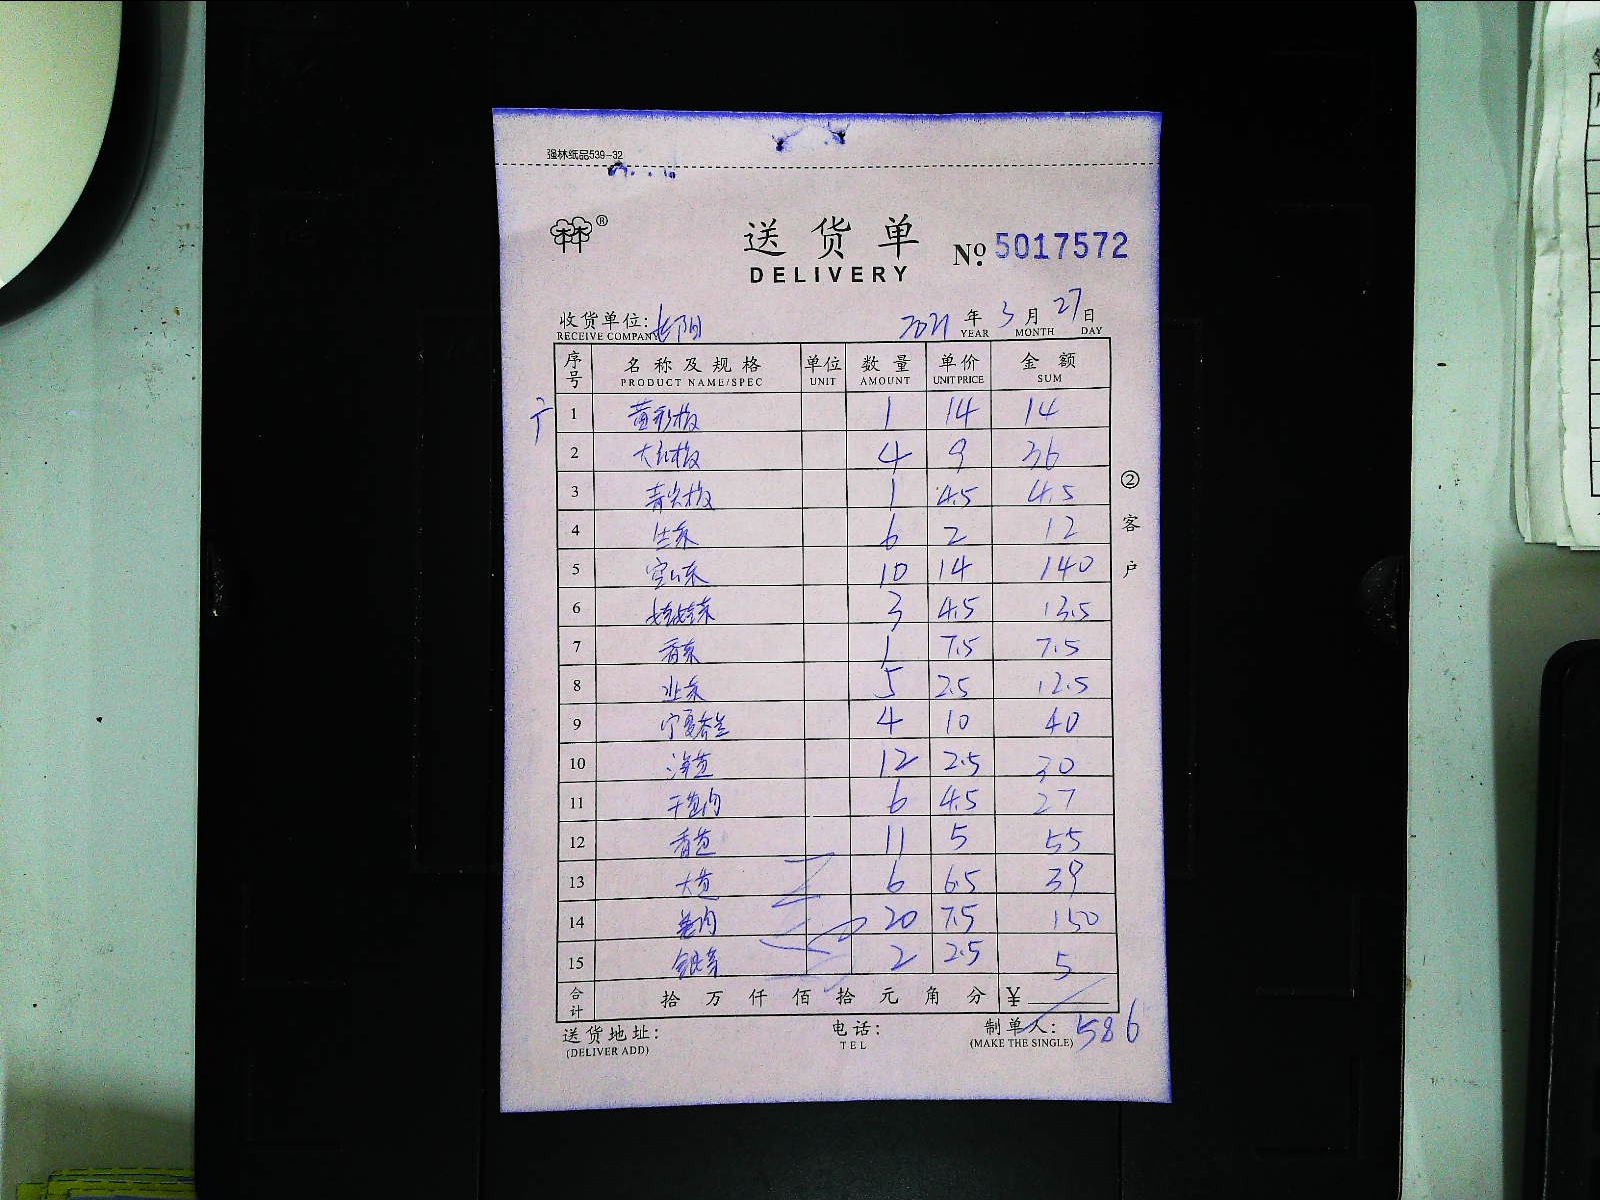 强林纸品539-32
林林®
送货单
DELIVERY
№ 5017572
收货单位: 长阳 2021年3月27日
RECEIVE COMPANY YEAR MONTH DAY
序号 名称及规格 单位 数量 单价 金额
PRODUCT NAME/SPEC UNIT AMOUNT UNIT PRICE SUM
1 黄彩椒 1 14 14
2 大红椒 4 9 36
3 青尖椒 1 4.5 4.5
4 生菜 6 2 12
5 10 14 140
6 娃娃菜 3 4.5 13.5
7 香菜 1 7.5 7.5
8 5 2.5 12.5
9 宁夏 4 10 40
10 12 2.5 30
11 6 4.5 27
12 香 11 5 55
13 大 6 6.5 39
14 20 7.5 150
15 2 2.5 5
合计 拾 万 仟 佰 拾 元 角 分 ¥
586
送货地址: 电话: 制单人:
(DELIVER ADD) TEL (MAKE THE SINGLE)
②客户